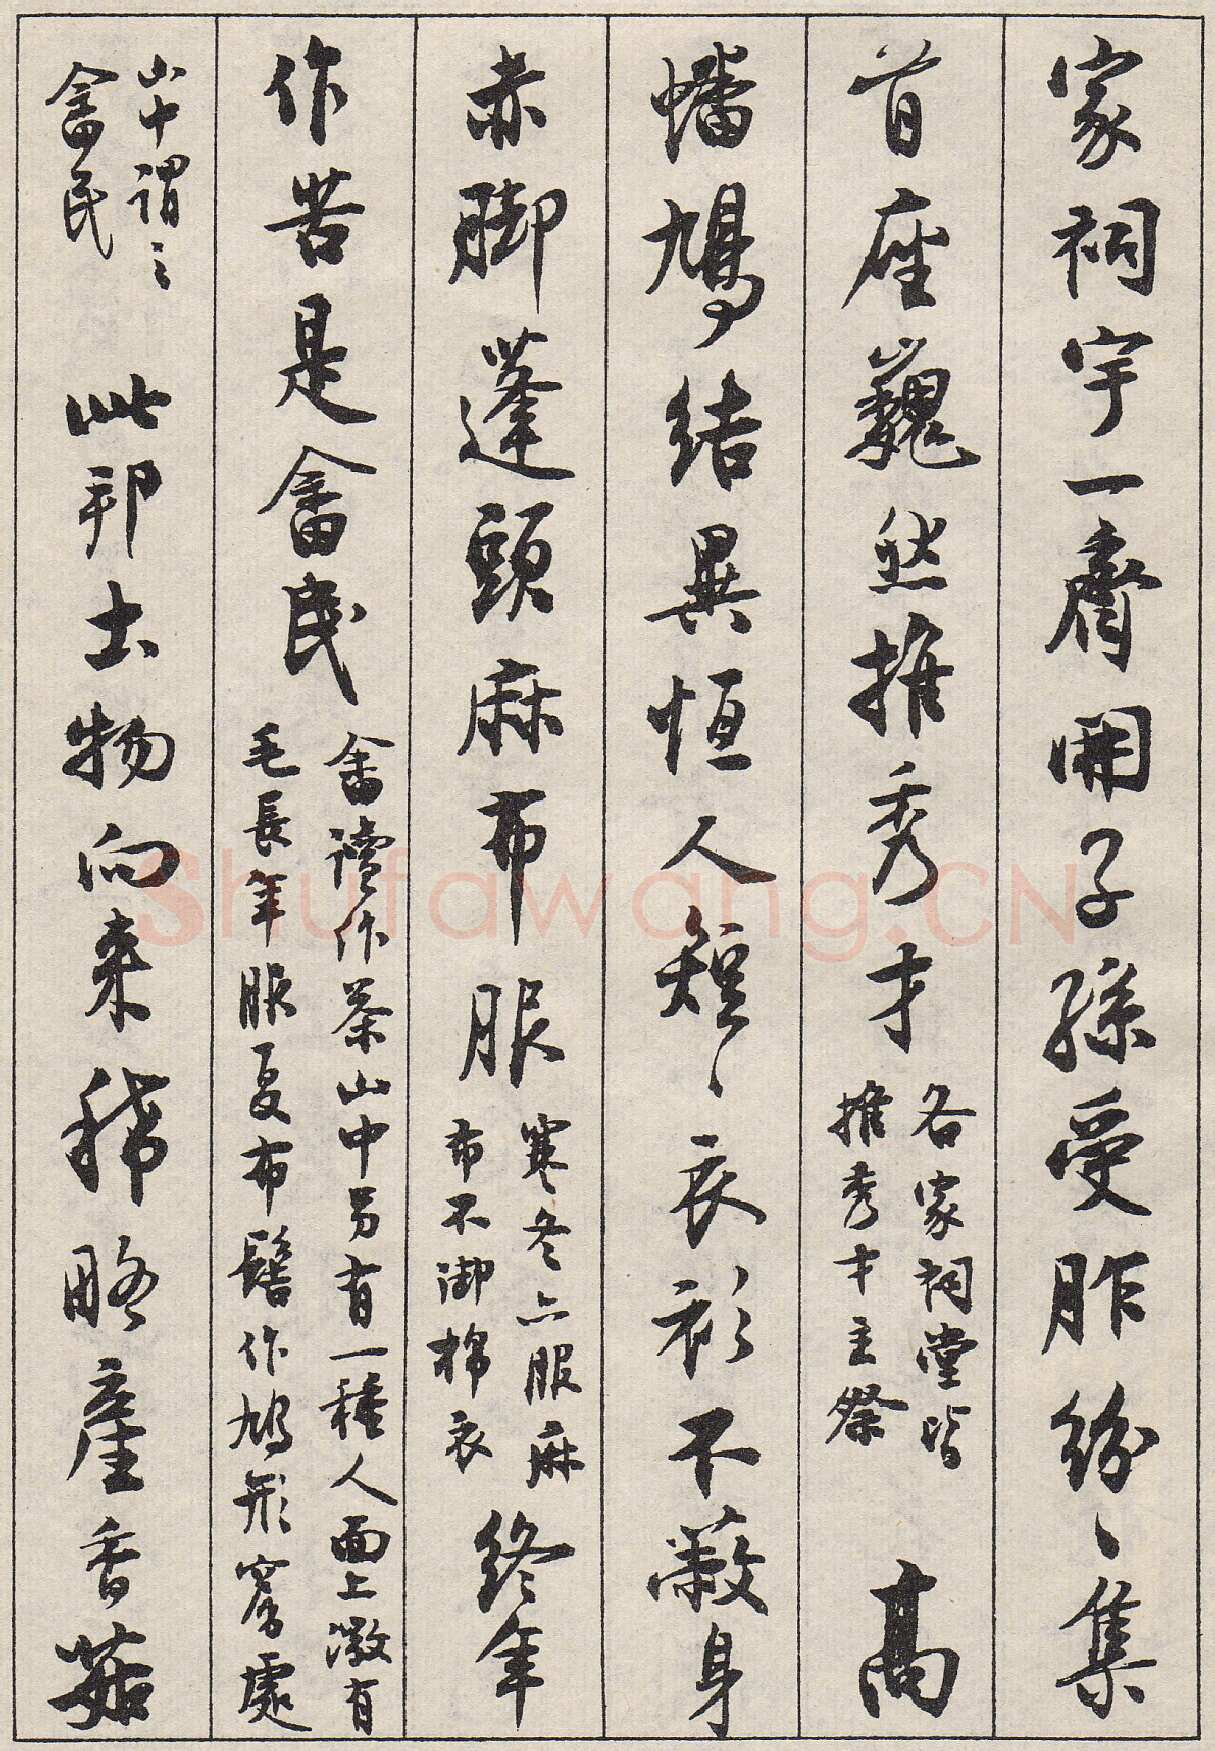 家祠宇一齊開子孫受胙紛、集
首座巍然推秀才各家祠堂皆推秀才主祭 高
蟠鳩結異恒人短、衣衫不蔽身
赤脚蓬頭麻布服寒冬亦服麻布不御棉衣 終年
作苦是畲民畲讀作茶山中另有一種人面上微有毛長年服夏布髻作鳩形窩處
山中謂之畲民 此邦土物向来稀略產香菇
Shufawang.CN